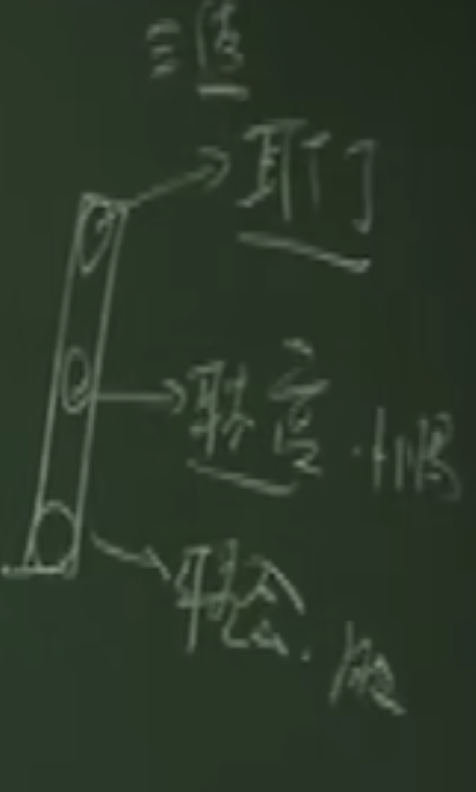 三焦
耳门
听宫.小肠
听会.胆